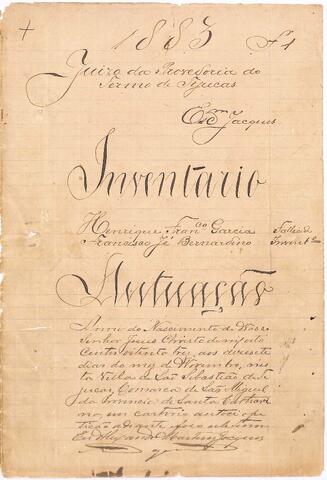 1883
Fl 1
Juizo da Provedoria do
Termo de Tijucas
Escm Jacques
Inventario
Henrique Franco Garcia Fallecido
Francisco Jé Bernardino Invente
Autuação
Anno do Nascimento de Nosso
Senhor Jesus Christo de mil oito
Centos oitenta e tres, aos dezesete
dias do mez de Novembro, nes
ta Villa de São Sebastião de Ti
jucas, Comarca de São Miguel
da Provincia de Santa Cathari
na, em cartorio autoei a pe
tição adiante